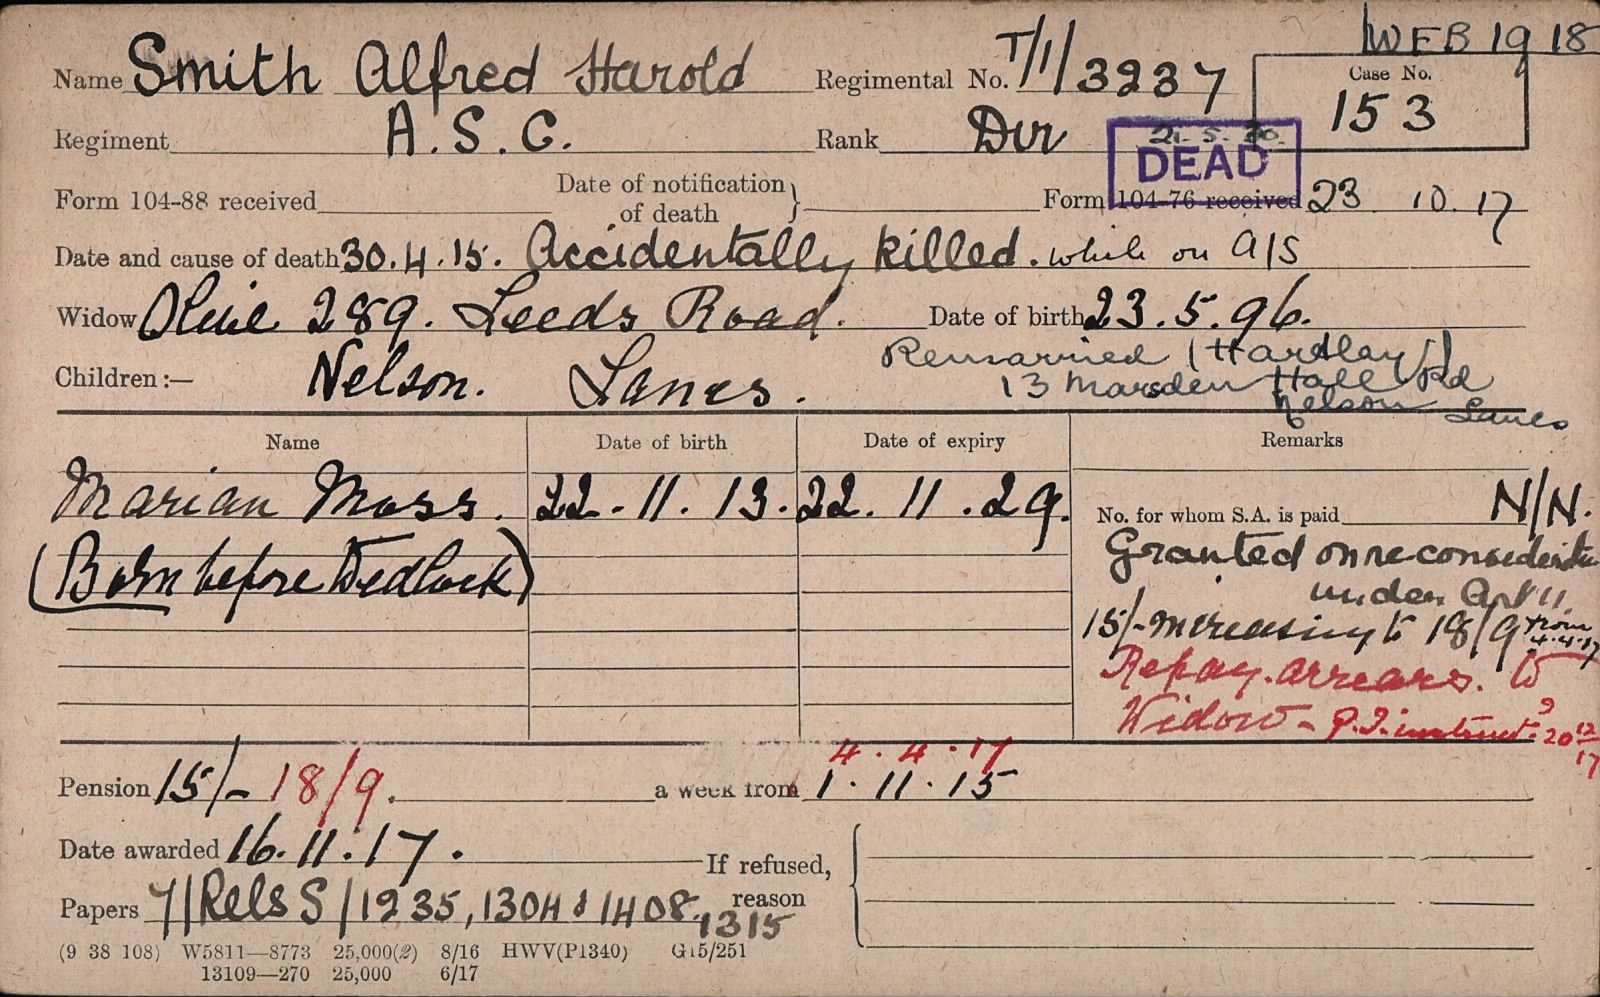 WFB 19 18
Name Smith Alfred Harold Regimental No. T/1/3237 Case No. 153
Regiment A.S.C. Rank Dvr 21.5.20. DEAD
Form 104-88 received Date of notification of death } Form 104-76 received 23 10.17
Date and cause of death 30.4.15. Accidentally killed. while on A/S
Widow Olive 289. Leeds Road. Date of birth 23.5.96.
Children:— Nelson. Lancs. Remarried (Hartley)
13 Marsden Hall Rd
Nelson Lancs
Name Date of birth Date of expiry Remarks
Marian Moss. 22.11.13. 22.11.29. No. for whom S.A. is paid N/N.
(Born before Wedlock) Granted on reconsideration
under Art 11.
15/- increasing to 18/9 from 4.4.17
Repay. arrears. to
Widow - P.I. instruct: 9 20 12/17
4.4.17
Pension 15/- 18/9. a week from 1.11.15
Date awarded 16.11.17. If refused,
Papers 7/Rels S/1235, 1304 & 1408. 1315 reason
(9 38 108) W5811—8773 25,000(2) 8/16 HWV(P1340) G15/251
13109—270 25,000 6/17